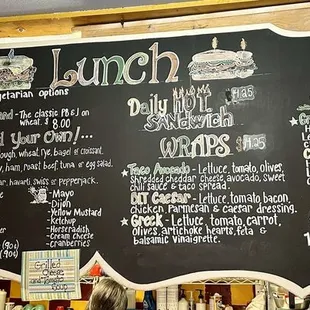 Lunch
vegetarian options
The classic PB & J on
wheat. $ 8.00
Your Own!...
wheat, rye, bagel or croissant.
ham, roast beef, tuna or egg salad.
swiss or pepperjack.
Mayo
Dijon
Yellow Mustard
Ketchup
Horseradish
Cream Cheese
cranberries
Grilled Cheese
Daily HOT
SANDWICH
WRAPS
Taco Avocado - Lettuce, tomato, olives,
shredded cheddar cheese, avocado, sweet
chili sauce & taco spread.
BLT Caesar - Lettuce, tomato, bacon,
chicken, Parmesan & caesar dressing.
Greek - Lettuce, tomato, carrot,
olives, artichoke hearts, feta &
balsamic vinaigrette.